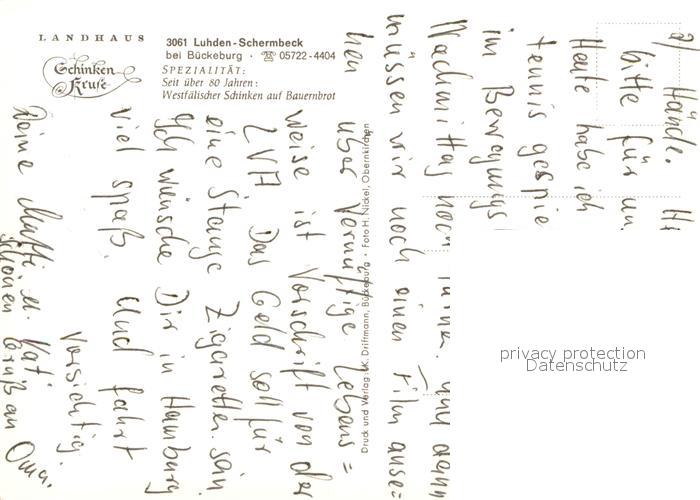 LANDHAUS
Schinken
Kruse
3061 Luhden-Schermbeck
bei Bückeburg · ☏ 05722-4404
SPEZIALITÄT:
Seit über 80 Jahren:
Westfälischer Schinken auf Bauernbrot
Druck und Verlag: K. Driftmann, Bückeburg · Foto H. Nickel, Obernkirchen
Hände.
bitte für un
Heute habe ich
tennis gespie
im Bewegungs
Nachmittag noch und dann
müssen wir noch einen Film anse=
hen über Vernünftige Lebens=
weise ist Vorschrift von der
LVA Das Geld soll für
eine Stange Zigaretten sein.
Ich wünsche Dir in Hamburg
viel spaß. Und fahrt
Vorsichtig.
Deine Mutti u. Kati
schönen Gruß an Oma.
privacy protection
Datenschutz